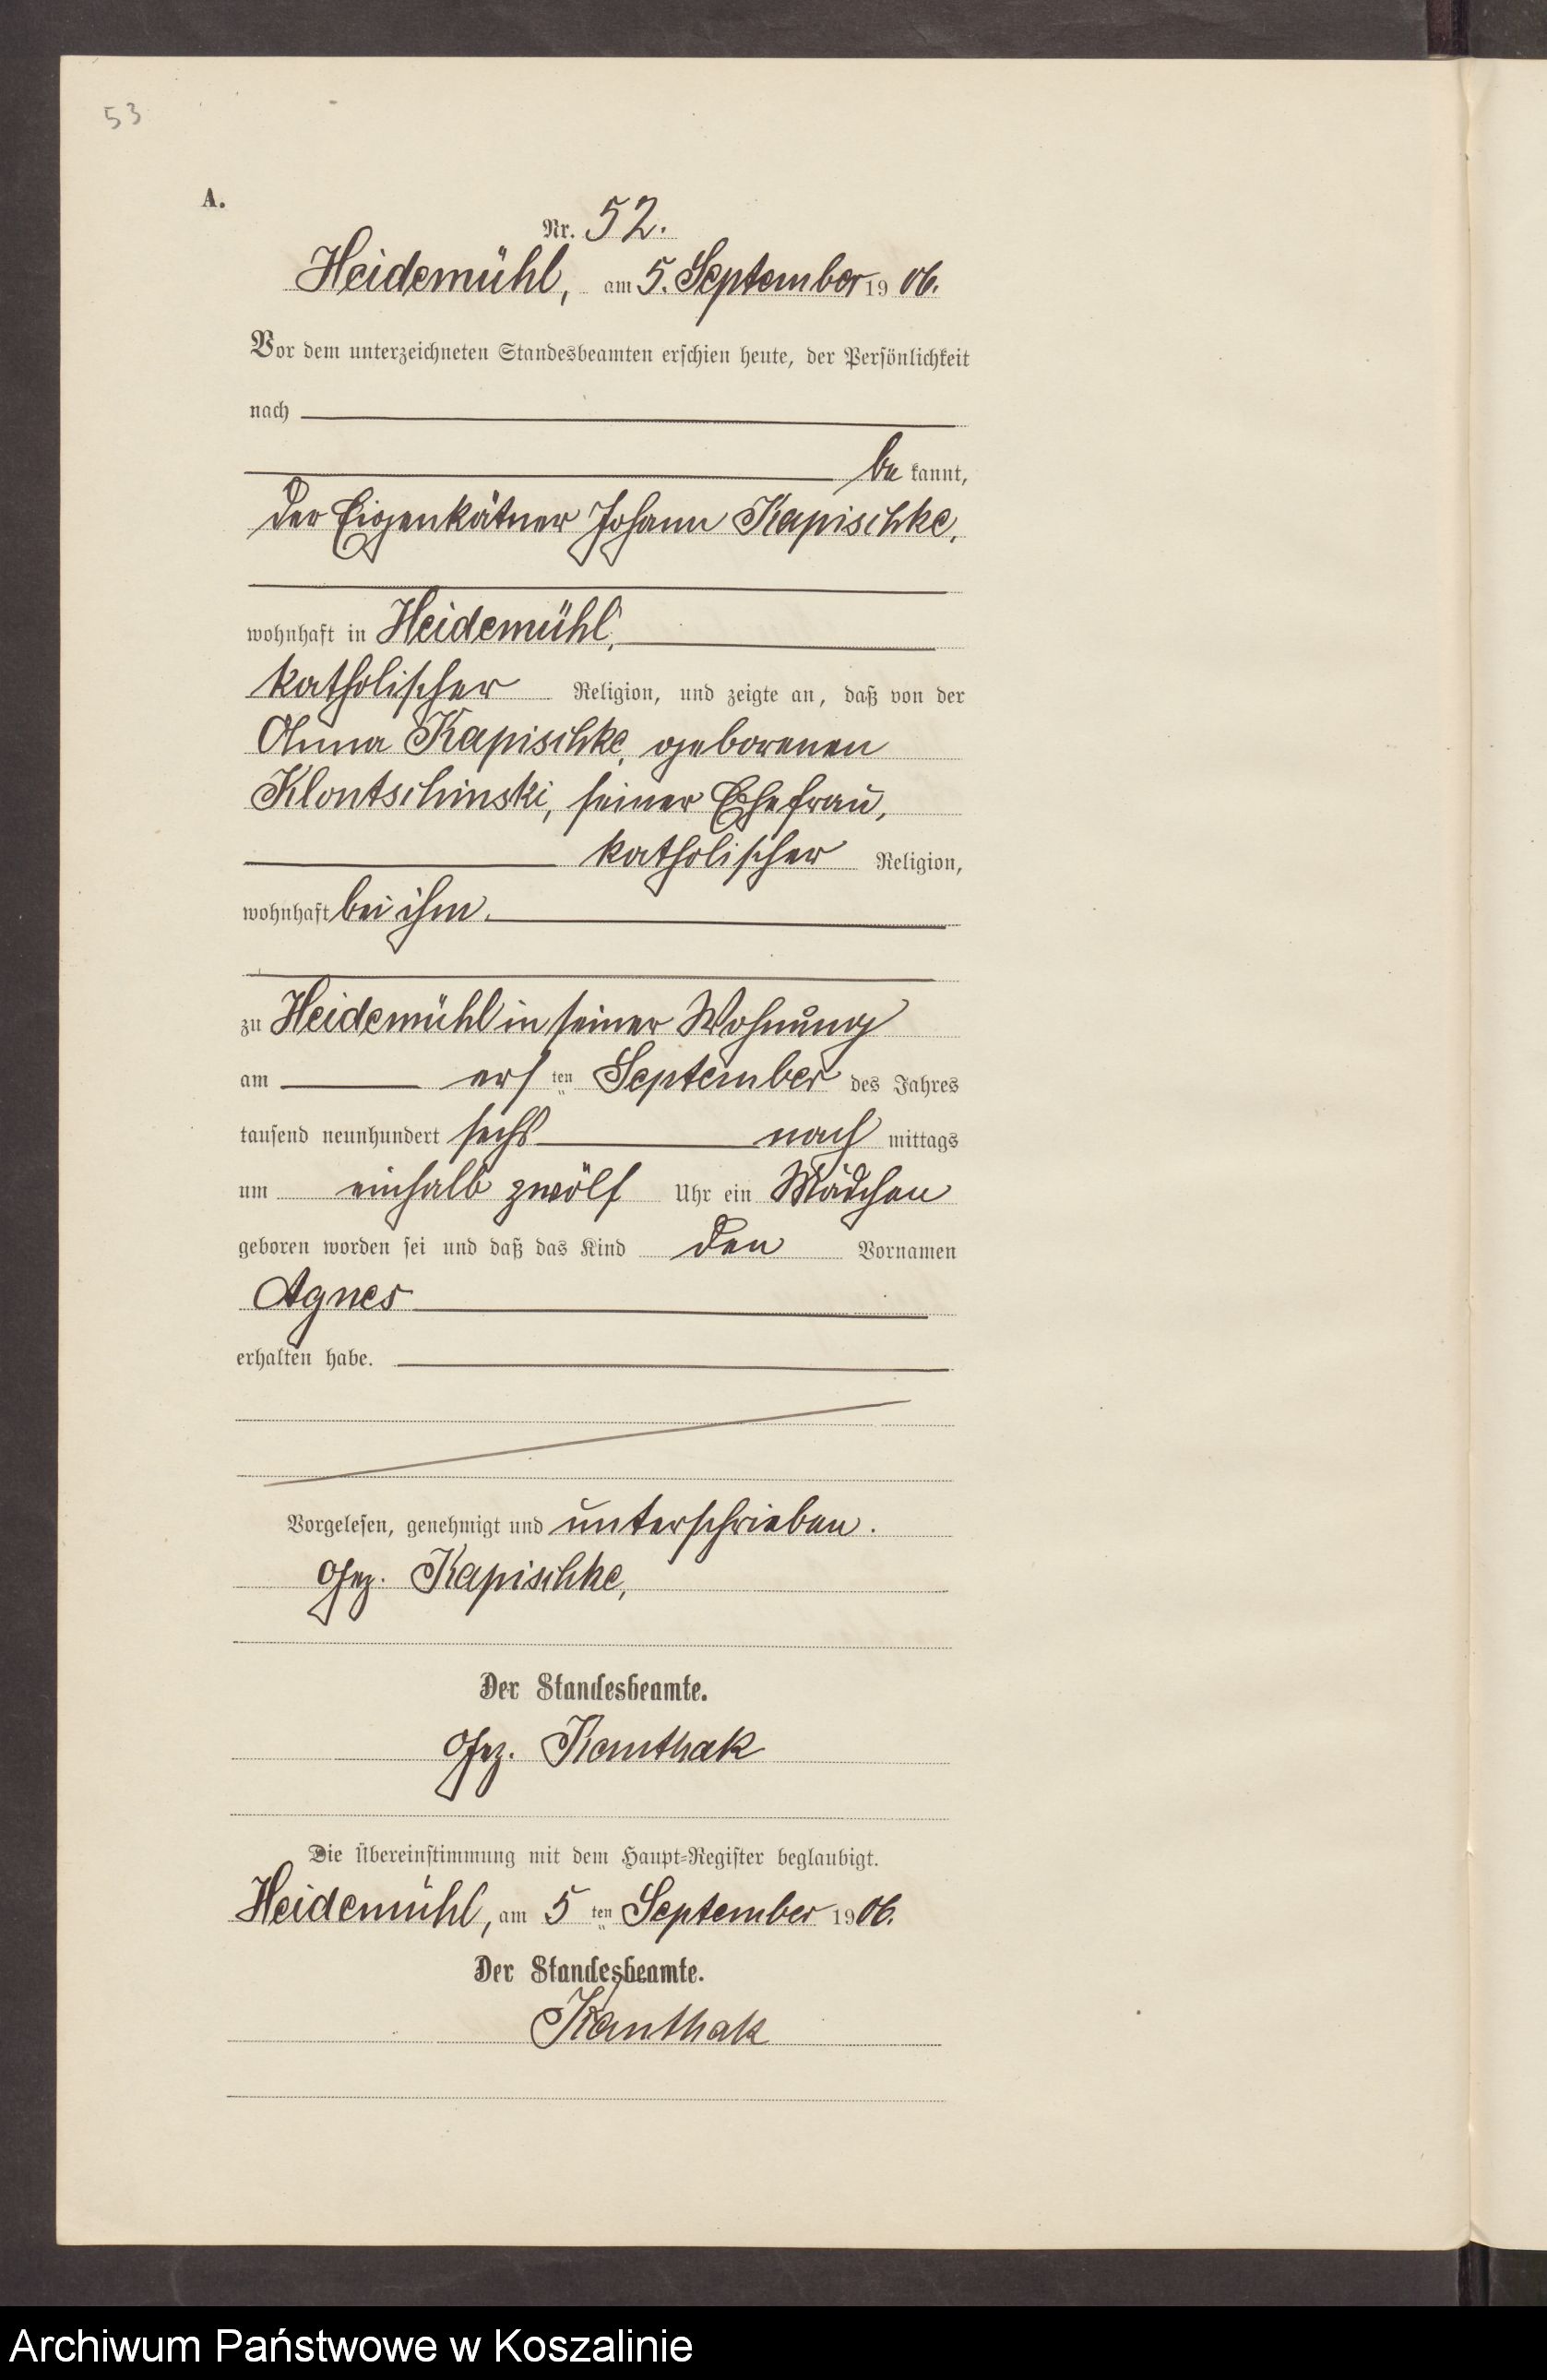 53
A.
Nr. 52.
Heidemühl, am 5. September 1906.
Vor dem unterzeichneten Standesbeamten erschien heute, der Persönlichkeit
nach
be kannt,
der Eigenkätner Johann Kapischke,
wohnhaft in Heidemühl,
katholischer Religion, und zeigte an, daß von der
Anna Kapischke, geborenen
Klontschinski, seiner Ehefrau,
katholischer Religion,
wohnhaft bei ihm.
zu Heidemühl in seiner Wohnung
am ersten September des Jahres
tausend neunhundert sechs nach mittags
um einhalb zwölf Uhr ein Mädchen
geboren worden sei und daß das Kind den Vornamen
Agnes
erhalten habe.
Vorgelesen, genehmigt und unterschrieben.
Gez. Kapischke,
Der Standesbeamte.
Gez. Kanthak
Die Übereinstimmung mit dem Haupt-Register beglaubigt.
Heidemühl, am 5 ten September 1906.
Der Standesbeamte.
Kanthak
Archiwum Państwowe w Koszalinie